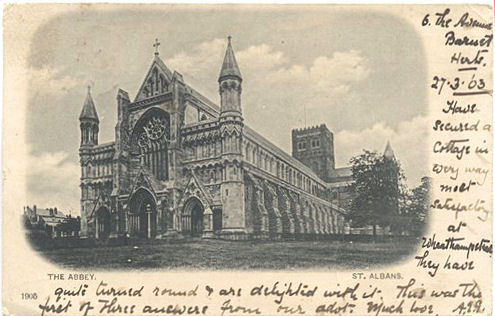 6. The Avenue
Barnet
Herts.
27·3·03
Have
secured a
Cottage in
every way
most
satisfactory
at
Wheathampstead
They have
THE ABBEY.
ST. ALBANS.
1905
quite turned round & are delighted with it. This was the
first of Three answers from our advt. Much love.